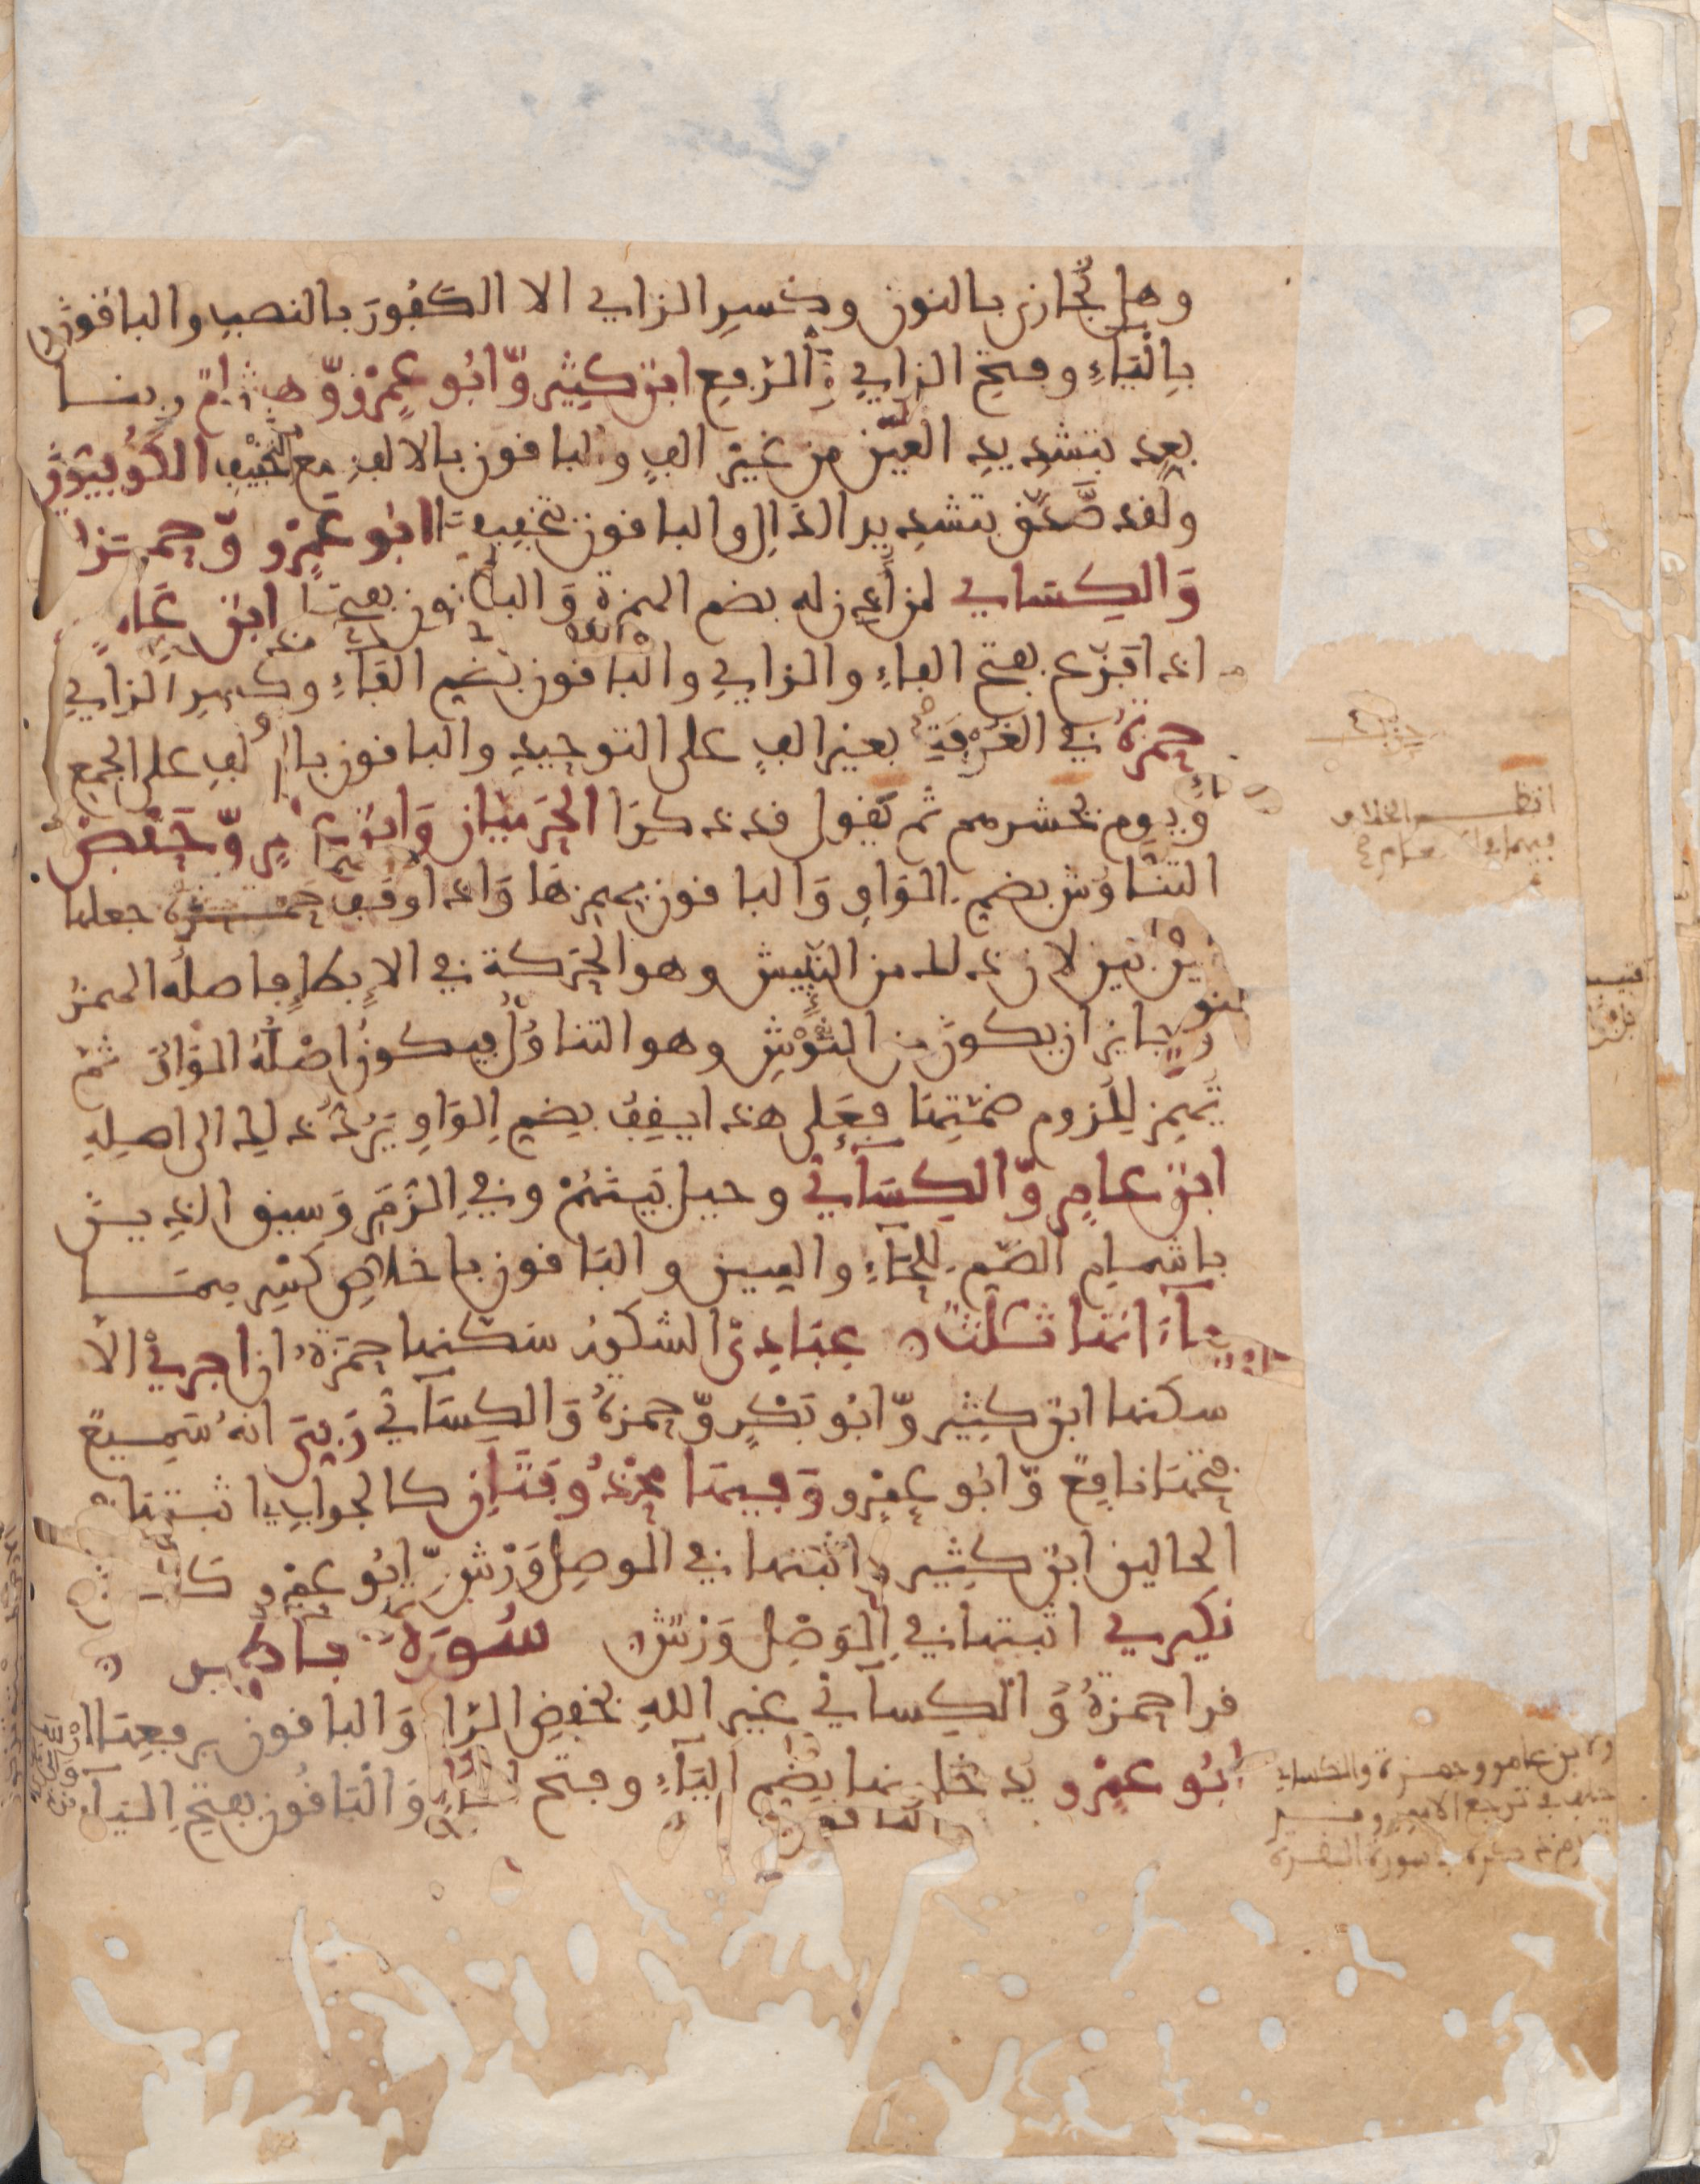 وهل نجازى بالنون وكسر الزاي الا الكفور بالنصب والباقون
بالياء وفتح الزاي والرفع ابن كثير وابو عمرو وهشام ربنا
بعد بتشديد العين من غير الف والباقون بالالف مع التخفيف الكوفيون
ولقد صدق بتشديد الدال والباقون بتخفيفها ابو عمرو وحمزة
والكسايي لمن اذن له بضم الهمزة والباقون بفتحها ابن عامر
اذا فزع بفتح الفاء والزاي والباقون بضم الفاء وكسر الزاي
حمزة في الغرفة بغير الف على التوحيد والباقون بالالف على الجمع
ويوم نحشرهم ثم نقول قد ذكرا الحرميان وابن عامر وحفص
التناوش بضم الواو والباقون بهمزها واذا وقف حمزة جعلها
بين بين لان ذلك من النئيش وهو الحركة في الابطاء فاصله الهمز
وجايز ان يكون من النوش وهو التناول فيكون اصله الواو ثم
تهمز للزوم ضمتها فعلى هذا يقف بضم الواو يرد ذلك الى اصله
ابن عامر والكسآئي وحيل بينهم وفي الزمر وسيق الذين
باشمام الضم للحاء والسين والباقون باخلاص كسرهما
ياءاتها ثلث عبادي الشكور سكنها حمزة ان اجري الا
سكنها ابن كثير وابو بكر وحمزة والكسآئي ربي انه سميع
فتحها نافع وابو عمرو وفيها محذوفتان كالجواب اثبتها في
الحالين ابن كثير واثبتها في الوصل ورش وابو عمرو كان
نكيري اثبتها في الوصل ورش سورة فاطر
قرا حمزة والكسآئي غير الله بخفض الرا والباقون برفعها
ابو عمرو يدخلونها بضم الياء وفتح الخاء والباقون بفتح اليآء
حزب
انظر الخلاف
فيهما في الانعام
وابن عامر وحمزة والكسائي
ترجع الامور
ذكره بسورة البقرة